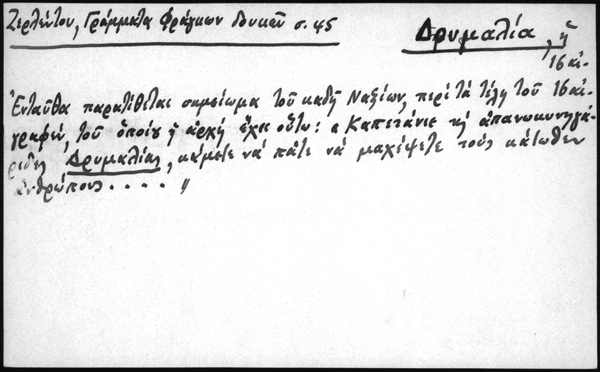 Ζερλέντου, Γράμματα Φράγκων δουκῶν σ. 45
Δρυμαλία, ἡ
16 αἰ.
Ἐνταῦθα παρατίθεται σημείωμα τοῦ καδῆ Ναξίων, περὶ τὰ τέλη τοῦ 16 αἰ.
γραφέν, τοῦ ὁποίου ἡ ἀρχὴ ἔχει οὕτω: « Καπετάνιε κὴ ἀπανωκυνηγά-
ριδες Δρυμαλίας, κάμετε νὰ πᾶτε νὰ μαχέψετε τοὺς κάτωθεν
ἀνθρώπους . . . . »